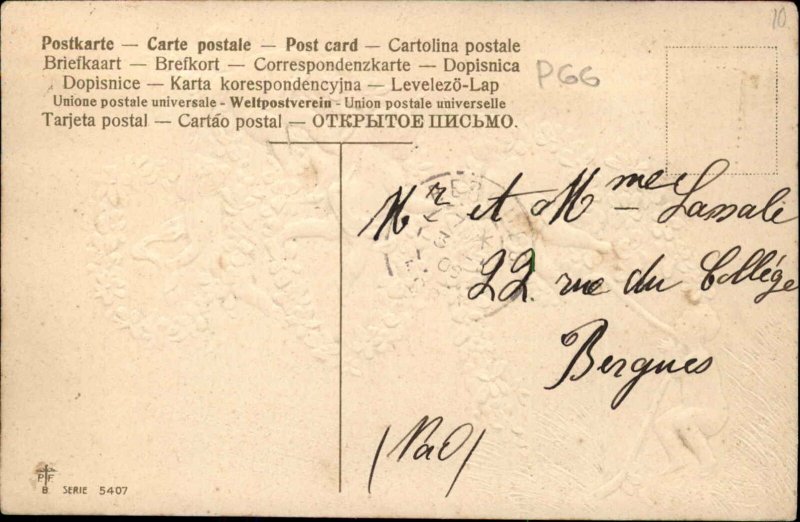 Postkarte — Carte postale — Post card — Cartolina postale
Briefkaart — Brefkort — Correspondenzkarte — Dopisnica
Dopisnice — Karta korespondencyjna — Levelező-Lap
Unione postale universale - Weltpostverein - Union postale universelle
Tarjeta postal — Cartão postal — ОТКРЫТОЕ ПИСЬМО.
10
P66
Mr et Mme Lassale
22 rue du Collége
Bergues
(Nord)
P F
B. SERIE 5407